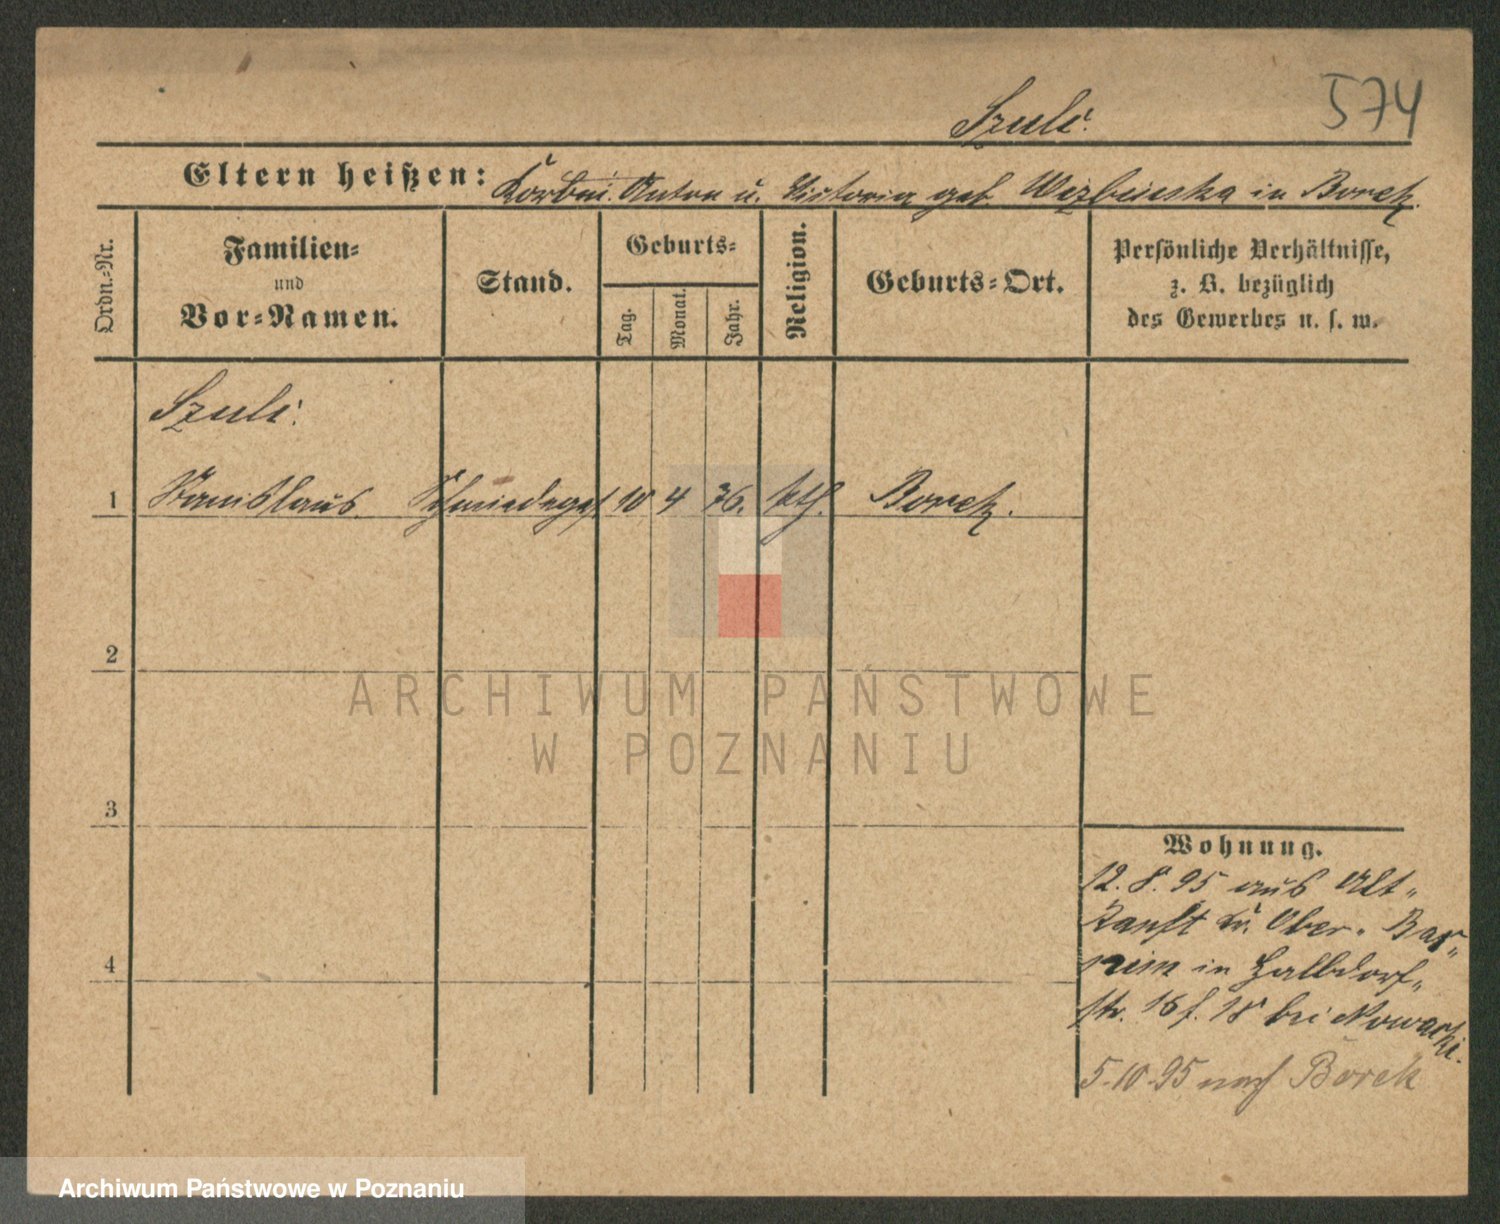 Szulc.
574
Eltern heißen: Anton u. Victoria geb. in Borek.
Ordn.-Nr.
Familien-
und
Vor-Namen.
Stand.
Geburts-
Tag.
Monat.
Jahr.
Religion.
Geburts-Ort.
Persönliche Verhältnisse,
z. B. bezüglich
des Gewerbes u. s. w.
Szulc.
1 Stanislaus. Schmiedeges. 10 4 76. kth. Borek.
2
ARCHIWUM PAŃSTWOWE
W POZNANIU
3
Wohnung.
12. 8. 95 aus Alt-
Ranft Kr. Ober-Bar-
nim in Halbdorf-
str. 16 f. 18 bei Nowacki.
4
5.10.95 nach Borek
Archiwum Państwowe w Poznaniu